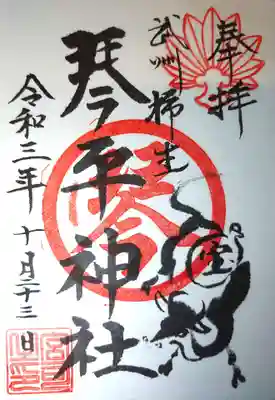 奉拝
武州柿生
琴平神社
令和三年 十月二十三日